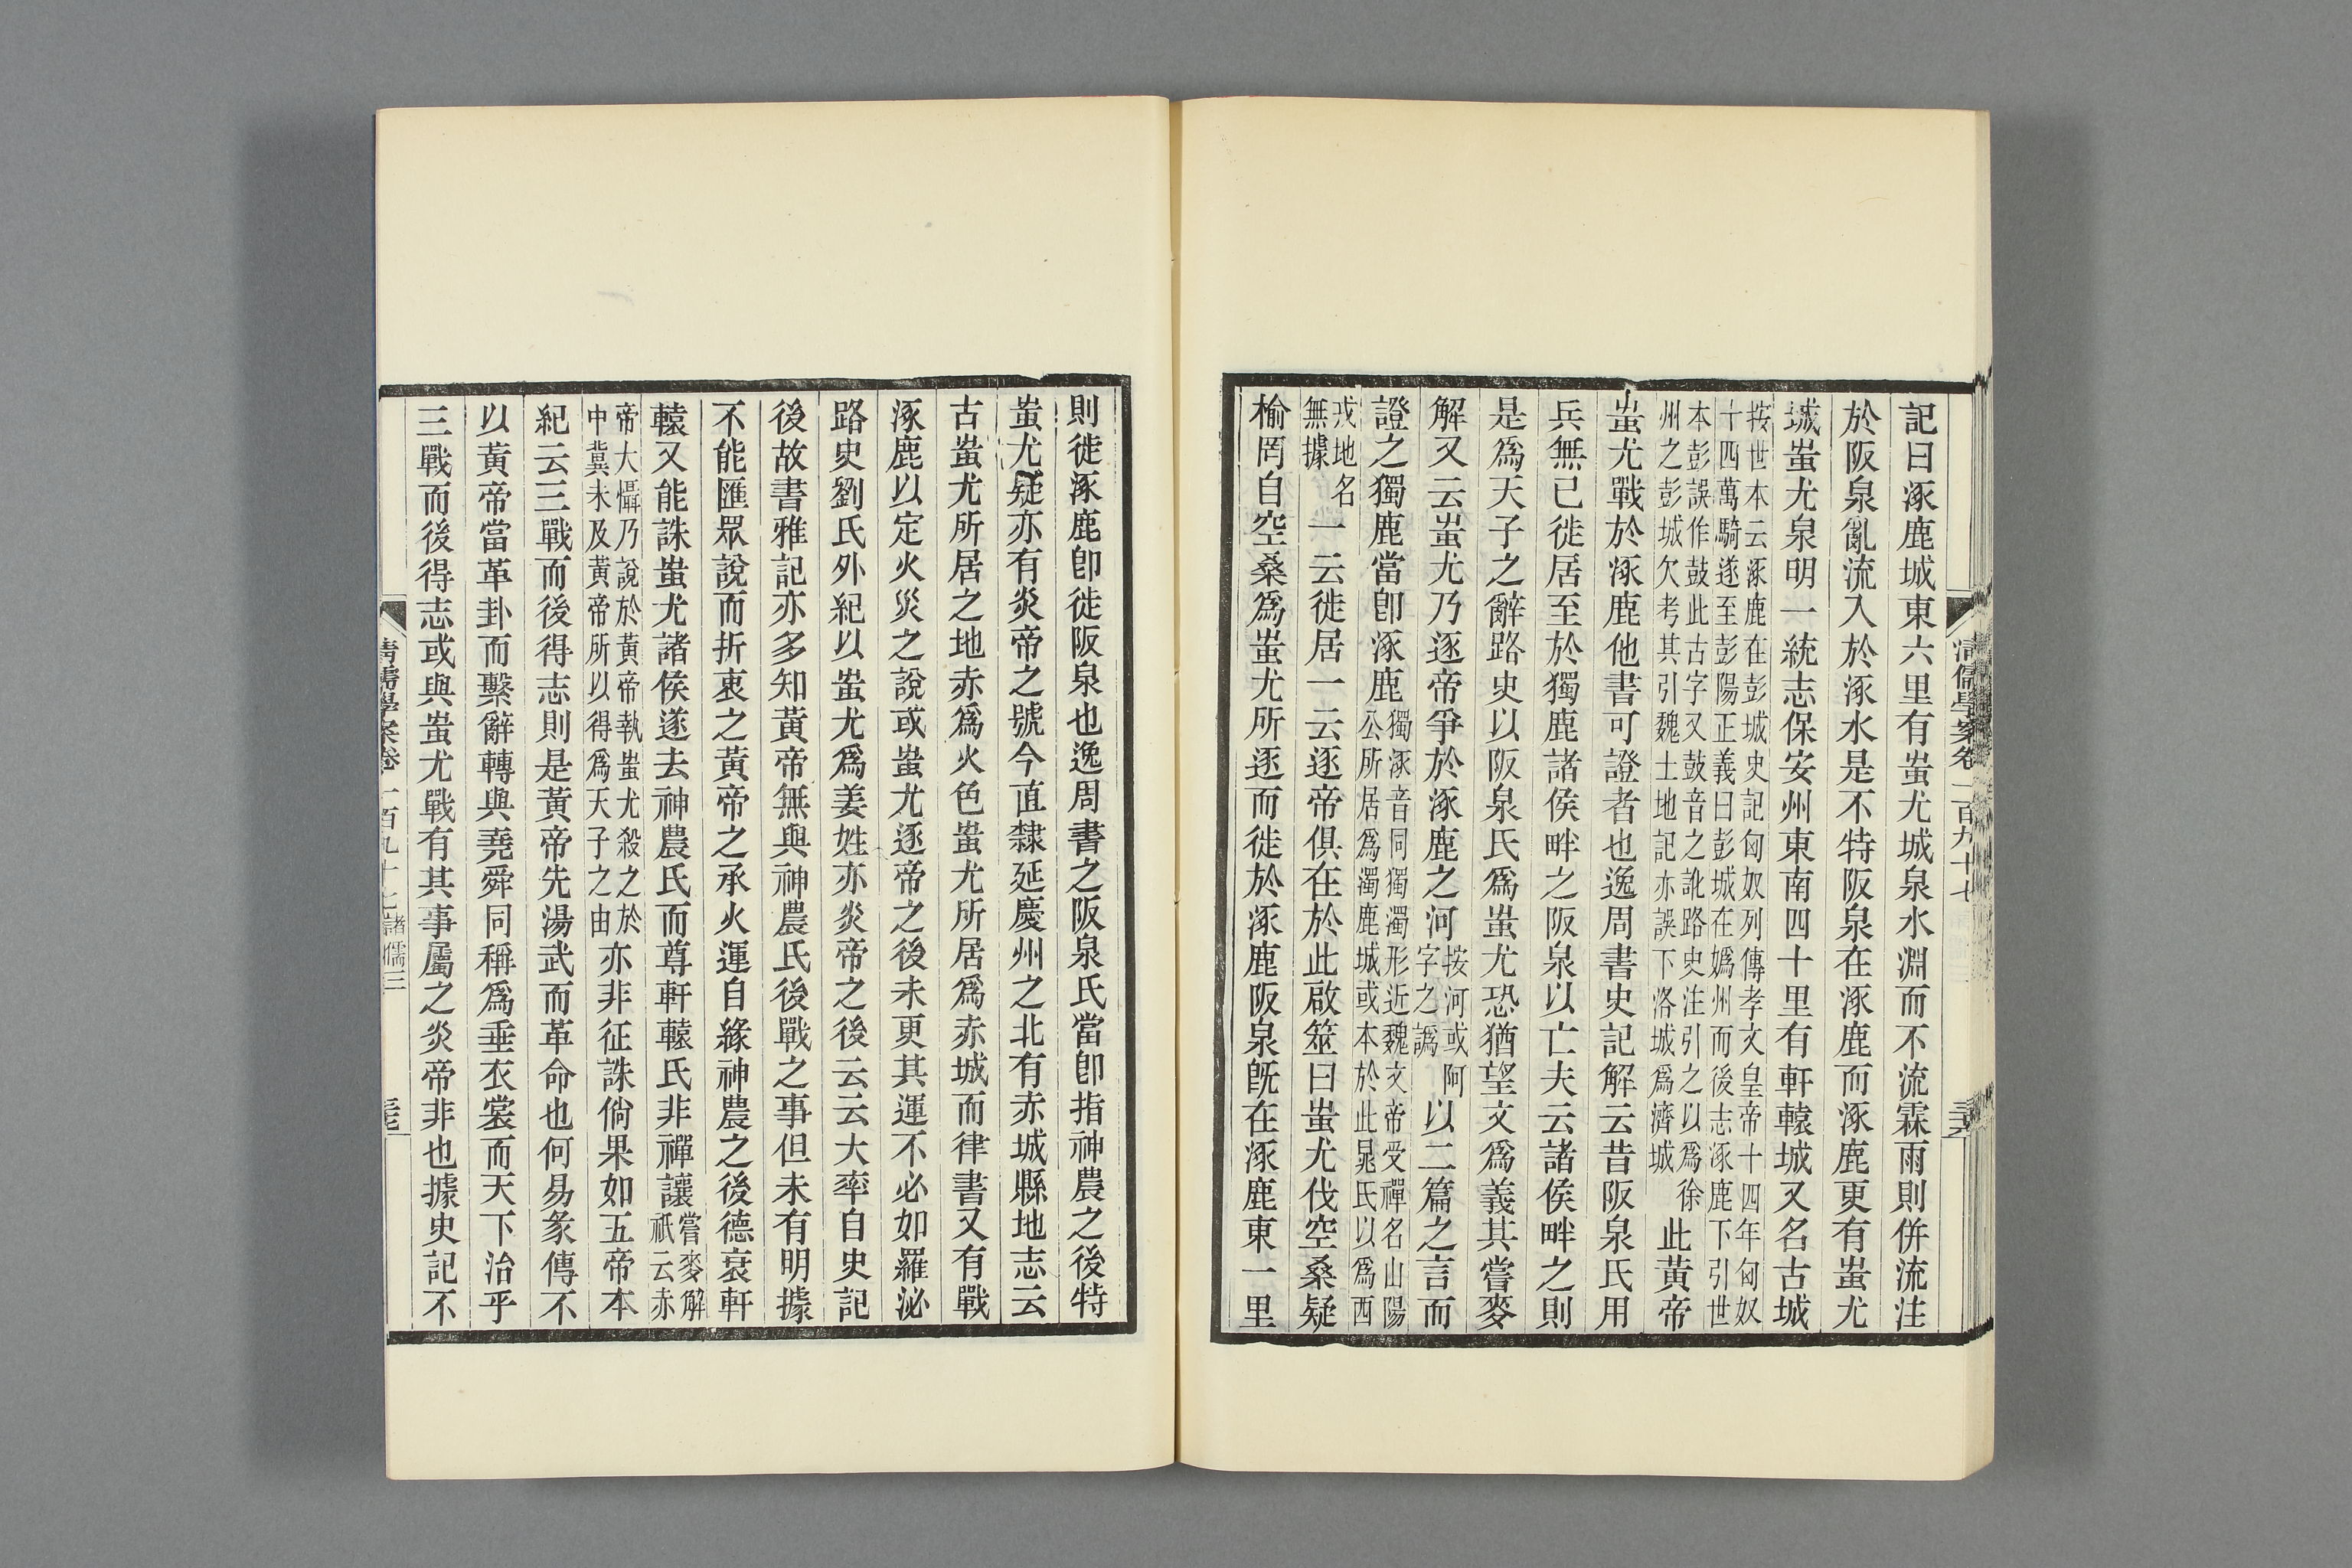 記曰涿鹿城東六里有蚩尤城泉水淵而不流霖雨則併流注
於阪泉亂流入於涿水是不特阪泉在涿鹿而涿鹿更有蚩尤
城蚩尤泉明一統志保安州東南四十里有軒轅城又名古城
按世本云涿鹿在彭城史記匈奴列傳孝文皇帝十四年匈奴
十四萬騎遂至彭陽正義曰彭城在嬀州而後志涿鹿下引世
本彭誤作鼓此古字又鼓音之訛路史注引之以爲徐
州之彭城欠考其引魏土地記亦誤下洛城爲濟城
此黃帝
蚩尤戰於涿鹿他書可證者也逸周書史記解云昔阪泉氏用
兵無已徙居至於獨鹿諸侯畔之阪泉以亡夫云諸侯畔之則
是爲天子之辭路史以阪泉氏爲蚩尤恐猶望文爲義其嘗麥
解又云蚩尤乃逐帝爭於涿鹿之河
按河或阿
字之譌
以二篇之言而
證之獨鹿當卽涿鹿
獨涿音同獨濁形近魏文帝受禪名山陽
公所居爲濁鹿城或本於此晁氏以爲西
戎地名
無據
一云徙居一云逐帝俱在於此啟筮曰蚩尤伐空桑疑
榆罔自空桑爲蚩尤所逐而徙於涿鹿阪泉旣在涿鹿東一里
清儒學案卷一百九十七
三六
則徙涿鹿卽徙阪泉也逸周書之阪泉氏當卽指神農之後特
蚩尤疑亦有炎帝之號今直隸延慶州之北有赤城縣地志云
古蚩尤所居之地赤爲火色蚩尤所居爲赤城而律書又有戰
涿鹿以定火災之說或蚩尤逐帝之後未更其運不必如羅泌
路史劉氏外紀以蚩尤爲姜姓亦炎帝之後云云大率自史記
後故書雅記亦多知黃帝無與神農氏後戰之事但未有明據
不能匯眾說而折衷之黃帝之承火運自緣神農之後德衰軒
轅又能誅蚩尤諸侯遂去神農氏而尊軒轅氏非禪讓
嘗麥解
祇云赤
帝大懾乃說於黃帝執蚩尤殺之於
中冀未及黃帝所以得爲天子之由
亦非征誅倘果如五帝本
紀云三戰而後得志則是黃帝先湯武而革命也何易彖傳不
以黃帝當革卦而繫辭轉與堯舜同稱爲垂衣裳而天下治乎
三戰而後得志或與蚩尤戰有其事屬之炎帝非也據史記不
清儒學案卷一百九十七 諸儒三
三七